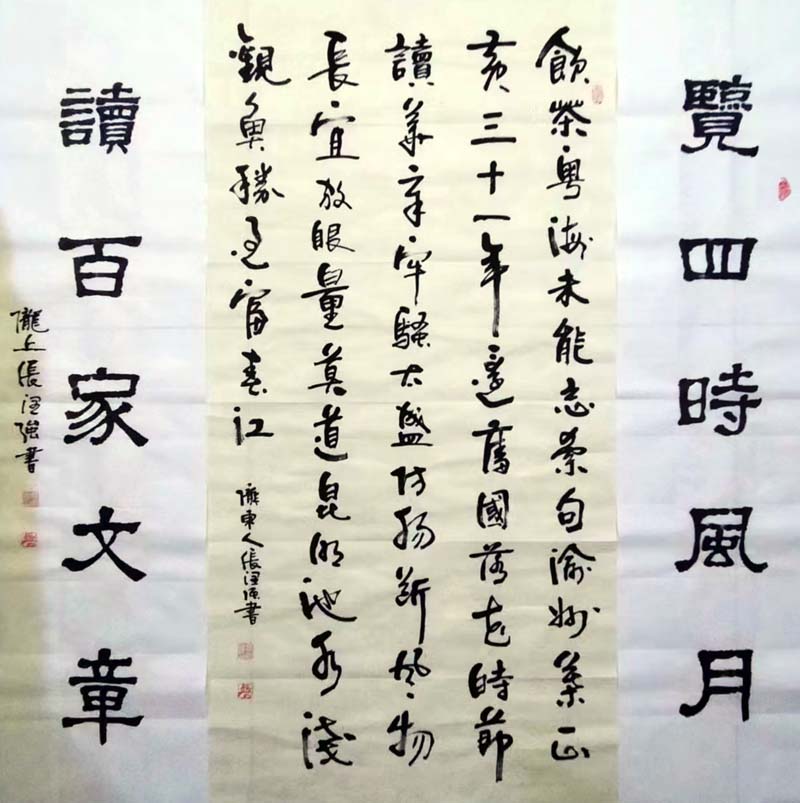 覽四時風月
飲茶粤海未能忘索句渝州葉正
黄三十一年還舊國落花時節
讀華章牢騷太盛防腸斷風物
長宜放眼量莫道昆明池水淺
觀魚勝過富春江
隴東人張澤強書
讀百家文章
隴上張澤強書